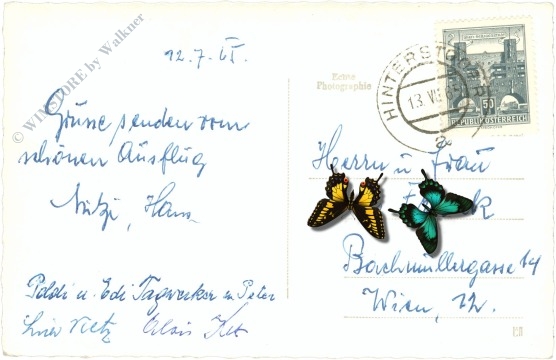 © WINSTORE by Walkner
12.7.65.
Grüsse senden vom
schönen Ausflug
Mitzi, Hans
Poldi u. Edi Tagwerker u. Peter
Echte
Photographie
HINTERST
13. VII.
a
50
REPUBLIK ÖSTERREICH
Herrn u Frau
k
Bachmüllergasse 14
Wien, 12.